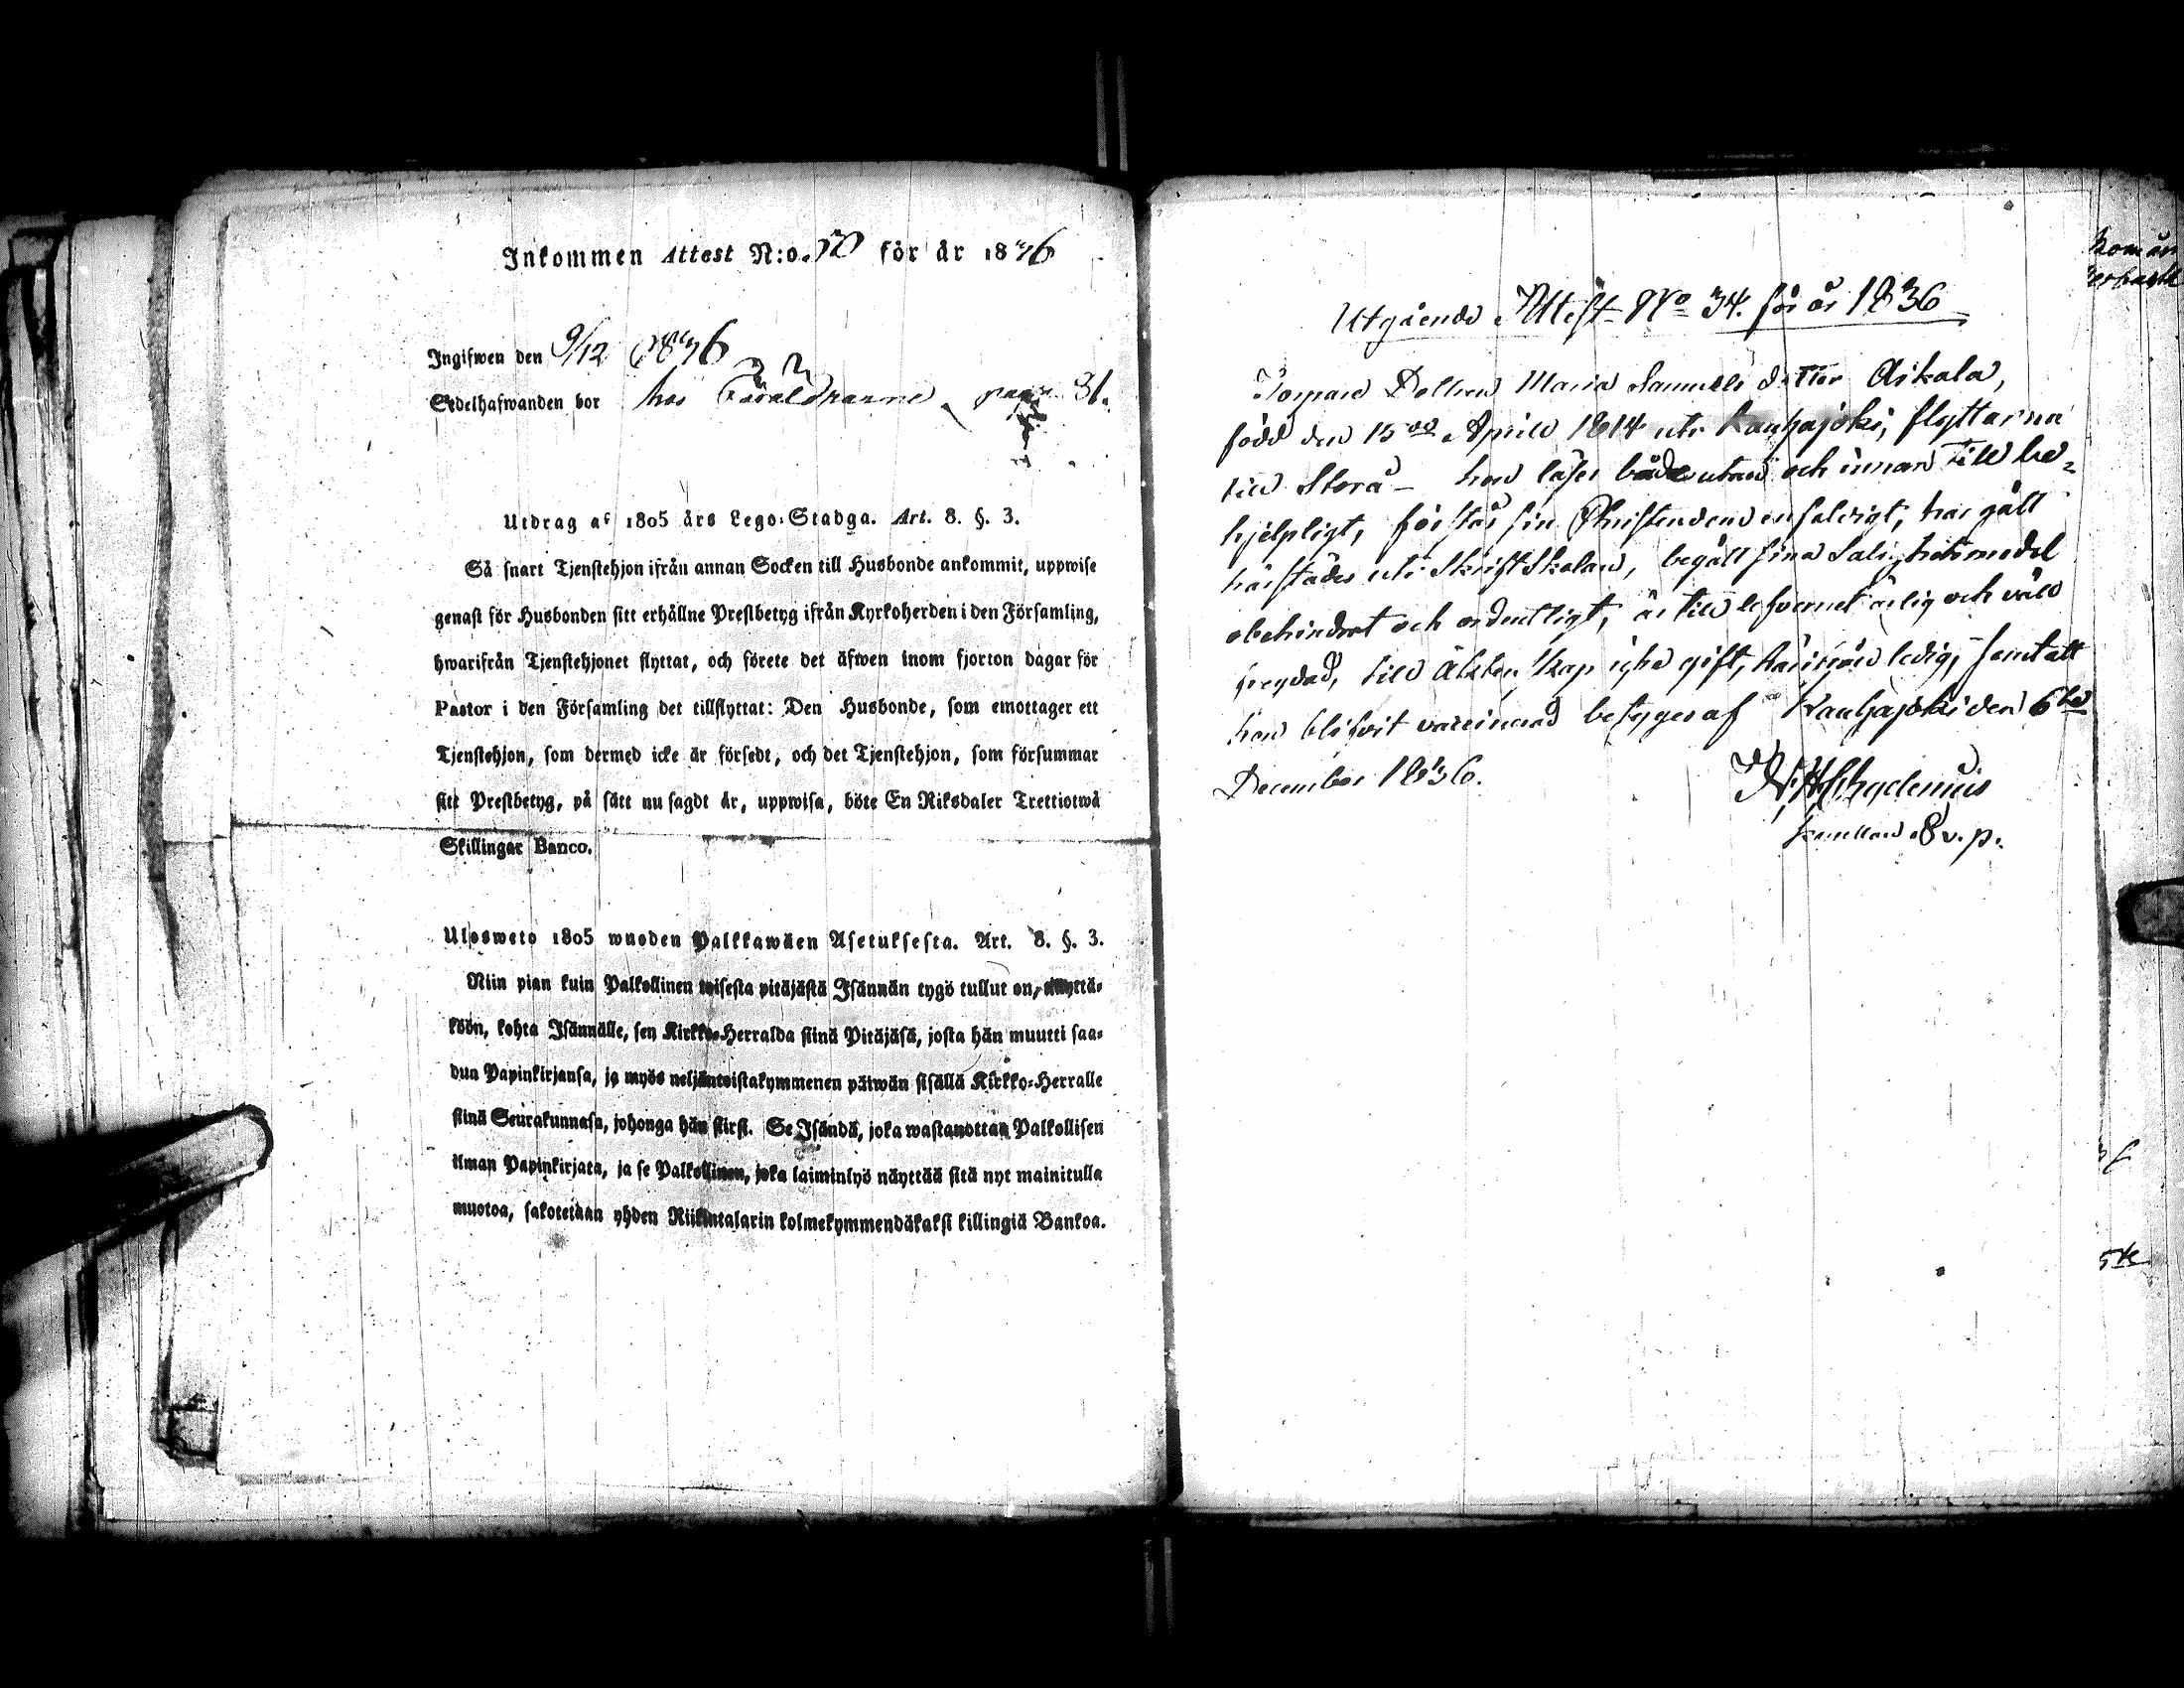 Inkommen Attest N:o. 50 för år 1836
Ingifwen den 9/12 1836
Ädelhafwanden bor hos Föräldrarne pag. 31.
Utdrag af 1805 års Lego-Stadga. Art. 8. §. 3.
Så snart Tjenstehjon ifrån annan Socken till Husbonde ankommit, uppwise
genast för Husbonden sitt erhållne Prestbetyg ifrån Kyrkoherden i den Församling,
hwarifrån Tjenstehjonet flyttat, och förete det äfwen inom fjorton dagar för
Pastor i den Församling det tillflyttat: Den Husbonde, som emottager ett
Tjenstehjon, som dermed icke är försedt, och det Tjenstehjon, som försummar
sitt Prestbetyg, på sätt nu sagdt är, uppwisa, böte En Riksdaler Trettiotwå
Skillingar Banco.
Ulosweto 1805 wuoden Palkkawäen Asetuksesta. Art. 8. §. 3.
Niin pian kuin Palkollinen toisesta pitäjästä Isännän tygö tullut on, näyttä-
köön, kohta Isännälle, sen Kirkko-Herralda siinä Pitäjäsä, josta hän muutti saa-
dun Papinkirjansa, ja myös neljäntoistakymmenen päiwän sisällä Kirkko-Herralle
siinä Seurakunnasa, johonga hän siirsi. Se Isändä, joka wastanottaa Palkollisen
ilman Papinkirjata, ja se Palkollinen, joka laiminlyö näyttää sitä nyt mainitulla
muotoa, sakotetaan yhden Riikintalarin kolmekymmendäkaksi killingiä Bankoa.
Utgående Attest No 34. för år 1836
Dottren Maria Samuels dotter Aikala,
född den 15de Aprill 1814 uti Kauhajoki, flyttar nu
till Storå – hon läser både utan och innan till be-
hjelpligt, förstår sin Christendom enfaldigt, har gått
härstädes uti Skriftskolan, begått sina Salighetsmedel
obehindrat och ordentligt, är till lefvernet ärlig och väld
frejdad, till Äktenskap icke gift, härifrån ledig, samt att
hon blifvit vaccinerad betygas af Kauhajoki den 6te
December 1836.
Chydenius
v. p.